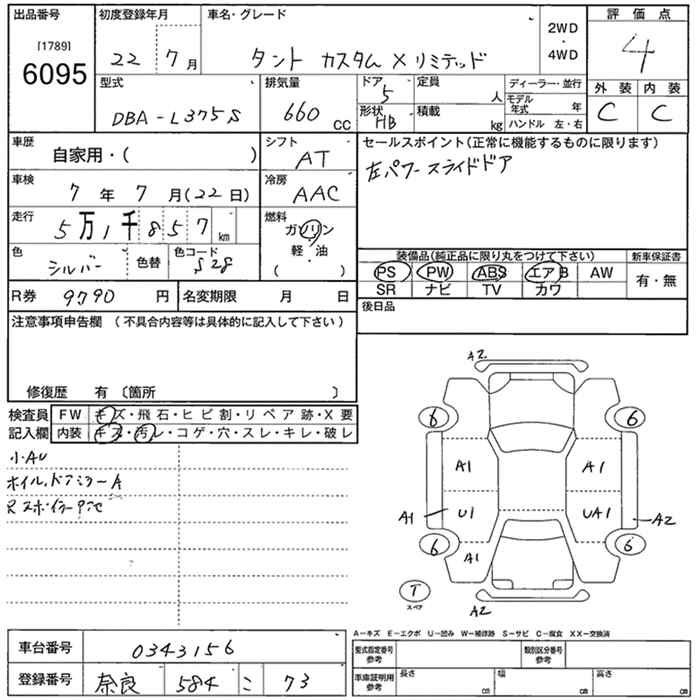 出品番号 初度登録年月 車名・グレード 2WD・4WD 評価点
[1789] 6095 22 7月 タント カスタム X リミテッド 4
型式 排気量 ドア 5 定員 人 ディーラー・並行 外装 内装
DBA-L375S 660 CC 形状 HB 積載 kg モデル年式 年 ハンドル 左・右 C C
車歴 自家用・( ) シフト AT セールスポイント(正常に機能するものに限ります)
車検 7年 7月(22日) 冷房 AAC 左パワースライドドア
走行 5万1千857km 燃料 ガソリン 軽・油 ( )
色 シルバー 色替 色コード S28
装備品(純正品に限り丸をつけて下さい) 新車保証書
PS PW ABS エアB AW 有・無
SR ナビ TV カワ
R券 9790円 名変期限 月 日 後日品
注意事項申告欄 (不具合内容等は具体的に記入して下さい)
修復歴 有 〔箇所 〕
検査員 FW キズ・飛石・ヒビ割・リペア跡・X要
記入欄 内装 キズ・汚レ・コゲ・穴・スレ・キレ・破レ
小AU
ホイル,ドアミラーA
A2
6 6
A1 A1
A1 U1 UA1 A2
6 A1 6
T スペア A2
A-キズ E-エクボ U-凹み W-補修跡 S-サビ C-腐食 XX-交換済
車台番号 0343156 型式指定番号 参考 類別区分番号 参考
登録番号 奈良 584 こ 73 車庫証明用 参考 長さ cm 幅 cm 高さ cm